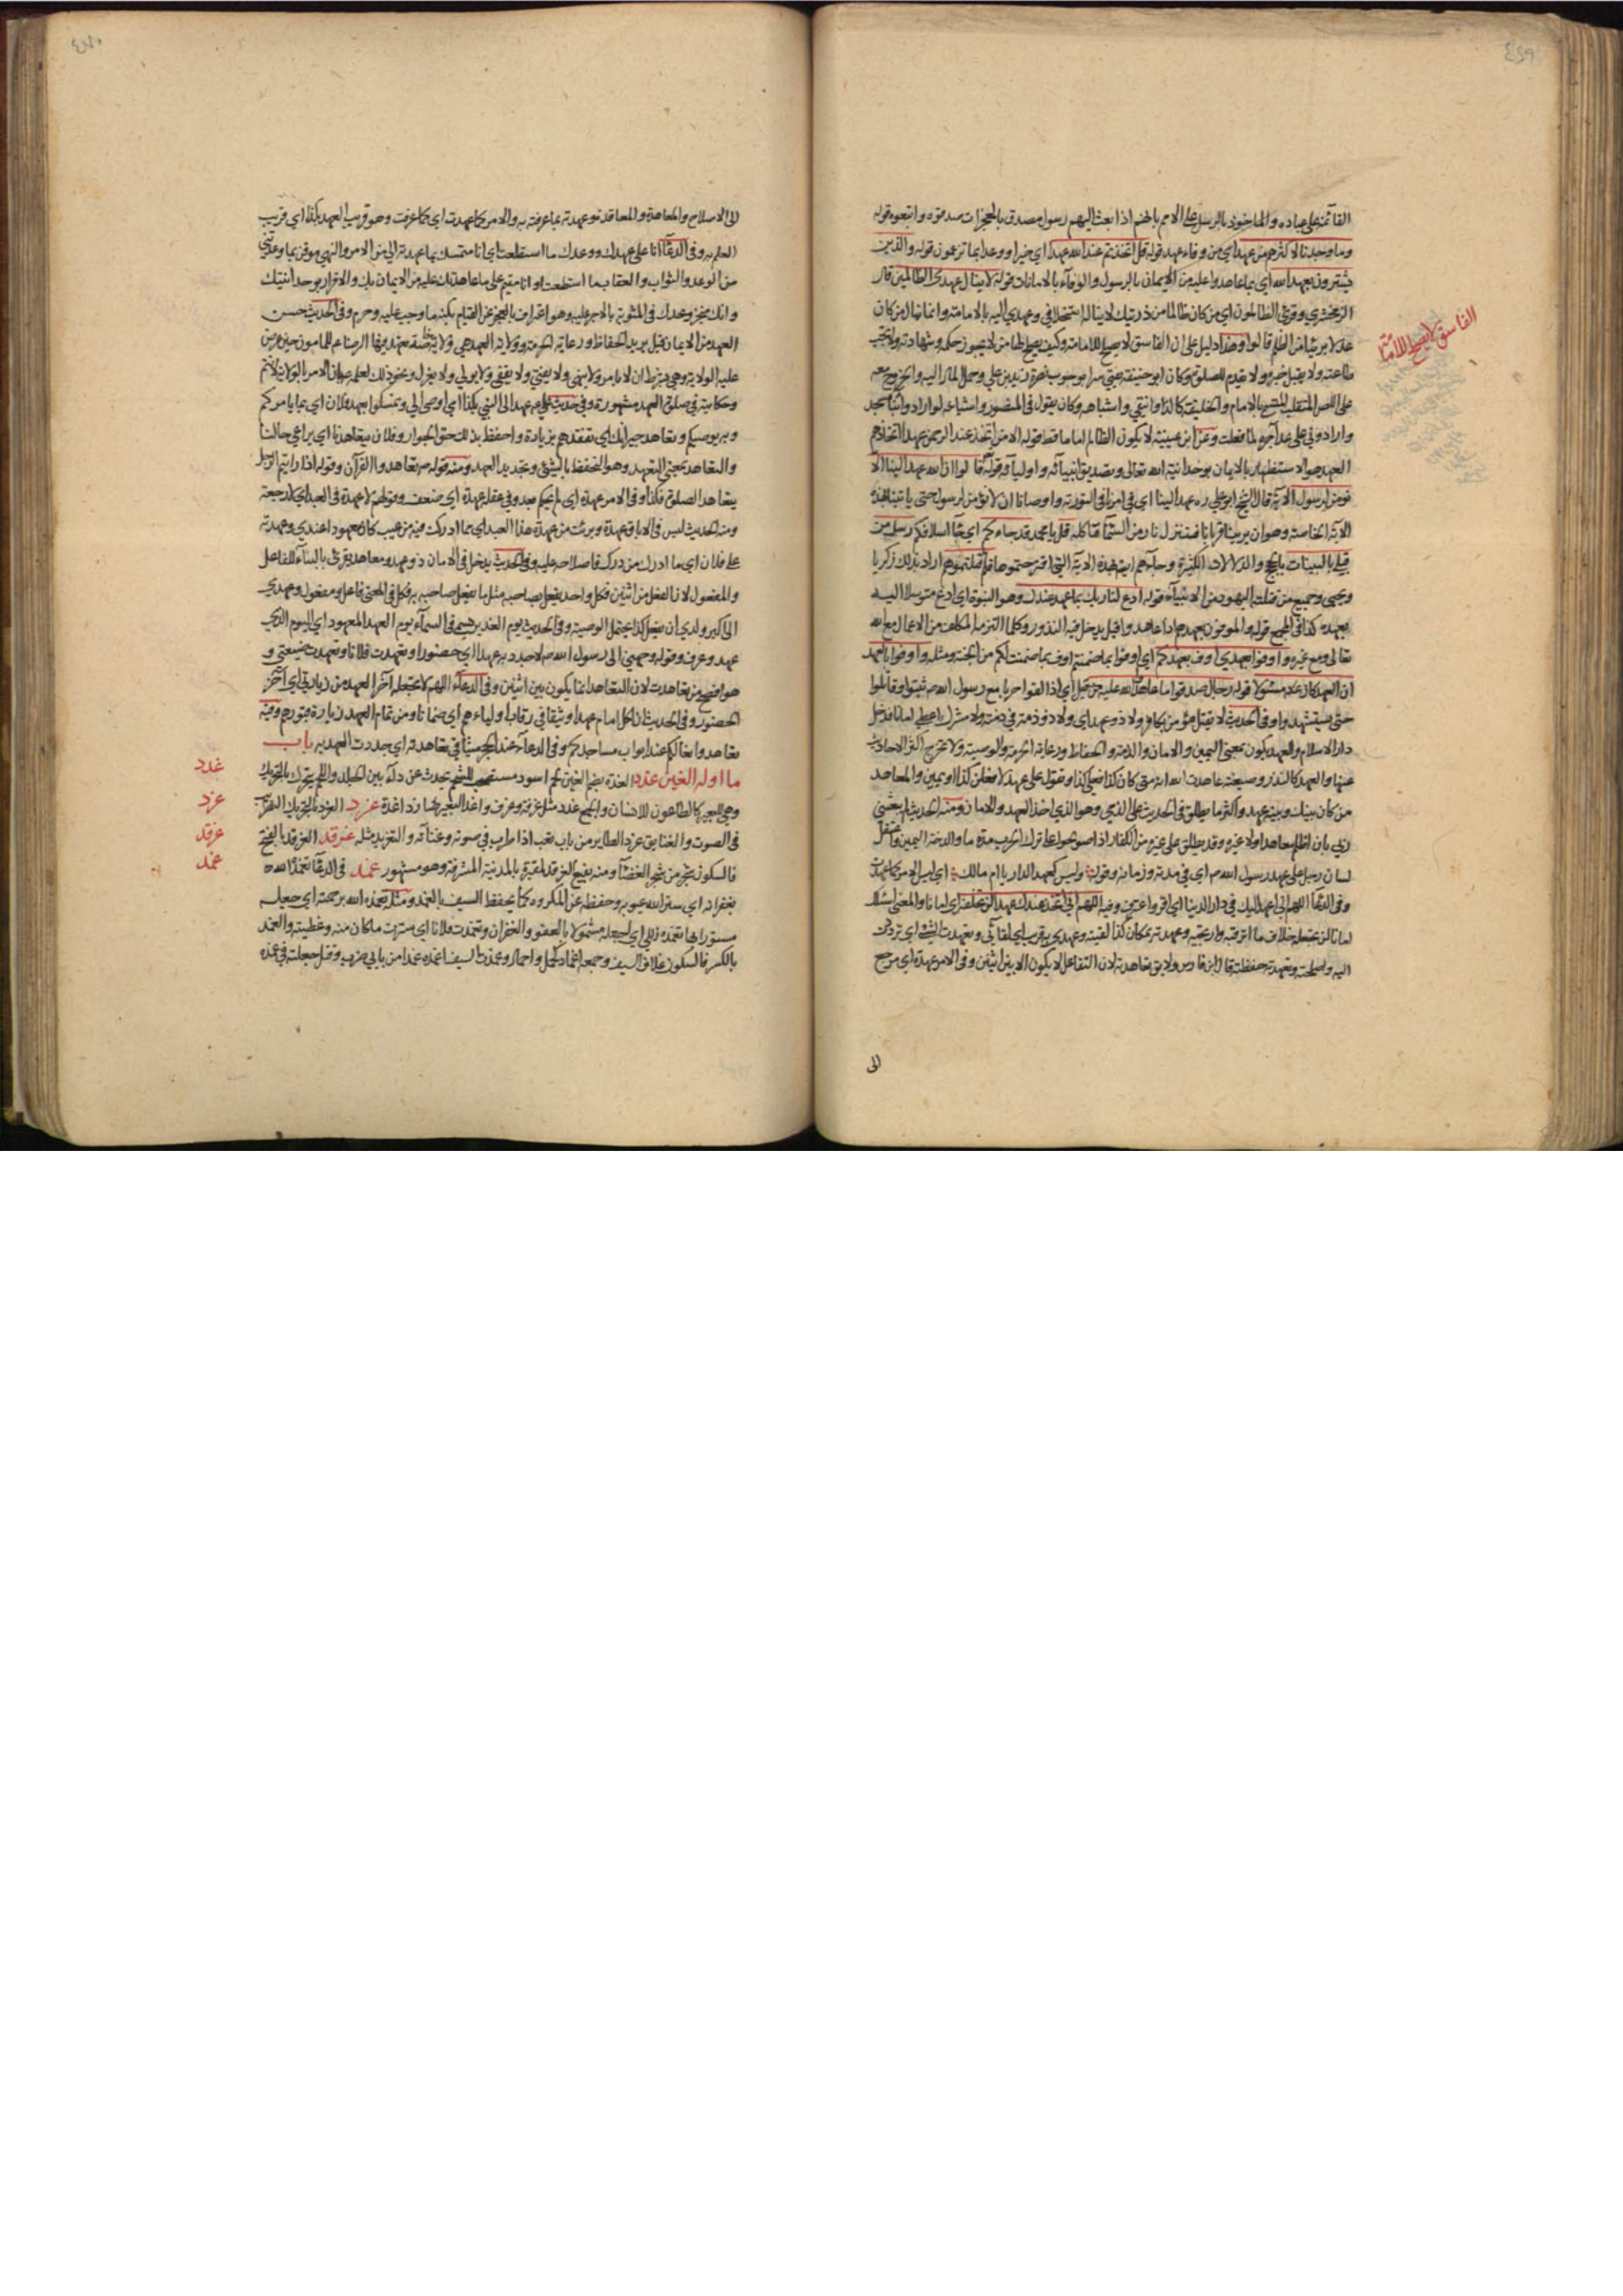 القائمة على عباده والماخوذ بالرسل على الامم بانهم اذا بعث اليهم رسول مصدق بالمعجزات صدقوه واتبعوه قوله
وما وجدنا لاكثرهم من عهد اي من وفاء عهد قوله قل اتخذتم عند الله عهدا اي خيرا ووعدا بما تزعمون قوله والذين
يشترون بعهد الله اي بما عاهدوا عليه من الايمان بالرسول والوفاء بالامانات قوله لا ينال عهدي الظالمين قال
الزمخشري وقرئ الظالمون اي من كان ظالما من ذريتك لا يناله استخلافي وعهدي اليه بالامامة وانما ينال من كان
عدلا بريئا من الظلم قالوا وهذا دليل على ان الفاسق لا يصلح للامامة وكيف يصلح لها من لا يجوز حكمه وشهادته ولا تجب
طاعته ولا يقبل خبره ولا يقدم للصلوة وكان ابو حنيفة يفتي سرا بوجوب نصرة زيد بن علي وحمل المال اليه والخروج معه
على اللص المتغلب المتسمي بالامام والخليفة كالدوانيقي واشباهه وكان يقول في المنصور واشياعه لو ارادوا بناء مسجد
وارادوني على عد آجره لما فعلت وعن ابن عيينة لا يكون الظالم اماما قط قوله الا من اتخذ عند الرحمن عهدا اتخاذهم
العهد هو الاستظهار بالايمان بوحدانية الله تعالى وبتصديق انبيائه واوليائه قوله قالوا ان الله عهد الينا الا
نؤمن لرسول الآية قال الشيخ ابو علي ره عهد الينا اي في امرنا في التورية واوصانا ان لا نؤمن لرسول حتى ياتينا بهذه
الآية الخاصة وهو ان يرينا قربانا فتنزل نار من السماء فتاكله قل يا محمد قد جاءكم اي جاء اسلافكم رسل من
قبلي بالبينات بالحجج والدلالات الكثيرة وجاءهم ايضا بهذه الآية التي اقترحتموها فلم قتلتموهم اراد بذلك زكريا
ويحيى وجميع من قتلته اليهود من الانبياء قوله ادع لنا ربك بما عهد عندك وهو النبوة اي ادع متوسلا اليه
بعهده كذا في المجمع قوله والموفون بعهدهم اذا عاهدوا قيل يدخل فيه النذور وكلما التزمه المكلف من الاعمال مع الله
تعالى ومع غيره واوفوا بعهدي اوف بعهدكم اي اوفوا بما ضمنتم اوف بما ضمنت لكم من الجنة ومثله واوفوا بالعهد
ان العهد كان عنه مسئولا قوله رجال صدقوا ما عاهدوا الله عليه من قبل اي اذا لقوا حربا مع رسول الله ص ثبتوا وقاتلوا
حتى يستشهدوا وفي الحديث لا يقتل مؤمن بكافر ولا ذو عهد اي ولا ذو ذمة في ذمته ولا مشرك اعطى امانا فدخل
دار الاسلام والعهد يكون بمعنى اليمين والامان والذمة والحفاظ ورعاية الحرمة والوصية ولا تخرج اكثر الاحاديث
عنها والعهد كالنذر وصيغته عاهدت الله انه متى كان كذا فعلي كذا وقوله على عهد لافعلن كذا اي يمين والمعاهد
من كان بينك وبينه عهد واكثر ما يطلق في الحديث على الذمي وهو الذي اخذ العهد والامان ومنه الحديث لم يبعثني
ربي بان اظلم معاهدا ولا غيره وقد يطلق على غيره من الكفار اذا صولحوا على ترك الحرب مدة ما والذمة اليمين
لسان رجل على عهد رسول الله ص اي في مدته وزمانه وقوله وليس كعهد الدار يا ام مالك اي ليس الامر كما عهدت
وفي الدعاء اللهم اني اعهد اليك في دار الدنيا اي اقر واعترف وفيه اللهم اني اتخذ عندك عهدا لن تخلفني اي امانا والمعنى اسئلك
امانا لن تجعله خلاف ما اترقبه وارتجيه وعهدته بمكان كذا لقيته وعهدي به قريب اي لقائي وتعهدت الشئ اي ترددت
اليه واصلحته وتعهدته حفظته قال ابن فارس ولا يق تعاهدته لان التفاعل لا يكون الا بين اثنين وفي الامر عهدة اي مرجع
الى
الفاسق لا يصلح للامامة
الى الاصلاح والمعاهدة والمعاقدة وعهدته بما عرفته به والامر كما عهدت اي كما عرفت وهو قريب العهد بكذا اي قريب
العلم به وفي الدعاء انا على عهدك ووعدك ما استطعت اي انا متمسك بما عهدته الي من الامر والنهي موقن بما وعدتني
من الوعد والثواب والعقاب ما استطعت او انا مقيم على ما عاهدتك عليه من الايمان بك والاقرار بوحدانيتك
وانك منجز وعدك في المثوبة بالاجر عليه وهو اعتراف بالعجز عن القيام بكنه ما وجب عليه وحرم وفي الحديث حسن
العهد من الايمان قيل يريد الحفاظ ورعاية الحرمة وولاية العهد هي ولاية خاصة عهد فيها الرضا ع للمامون حين عرض
عليه الولاية وهي بشرط ان لا يامر ولا ينهى ولا يفتي ولا يقضي ولا يولي ولا يعزل ونحو ذلك لعلمه بان الامر بالولاية لا يتم
وحكايته في صلوة العهد مشهورة وفي حديث علي ع عهد الى النبي بكذا اي اوصى الي وتمسكوا بعهد فلان اي بما يامركم
وبه يوصيكم وتعاهد جيرانك اي تفقدهم بزيادة واحفظ بذلك حق الجوار وفلان يتعاهدنا اي يراعي حالنا
والتعاهد بمعنى التعهد وهو التحفظ بالشئ وتجديد العهد ومنه قوله ص تعاهدوا القرآن وقوله اذا رايتم الرجل
يتعاهد الصلوة فكذا وفي الامر عهدة اي لم يحكم بعد وفي عقله عهدة اي ضعف وقولهم لا عهدة في العبد اي لا رجعة
ومنه الحديث ليس في الاباق عهدة وبرئت من عهدة هذا العبد اي مما ادركت فيه من عيب كان معهودا عندي وعهدته
على فلان اي ما ادرك من درك فاصلاحه عليه وفي الحديث يدخل في الامان ذو عهد ومعاهد يقرئ بالبناء للفاعل
والمفعول لان الفعل من اثنين فكل واحد يفعل بصاحبه مثل ما يفعل صاحبه به فكل في المعنى فاعل ومفعول وعهدي
الى اكبر ولدي ان يفعل كذا يحتمل الوصية وفي الحديث يوم الغدير يسمى في السماء يوم العهد المعهود اي اليوم الذي
عهد وعرف وقوله وجهني الى رسول الله ص لاجدد به عهدا اي حضورا وتعهدت فلانا وتعهدت ضيعتي و
هو افصح من تعاهدت لان التعاهد انما يكون بين اثنين وفي الدعاء اللهم لا تجعله آخر العهد من زيارتي اي آخر
الحضور وفي الحديث ان لكل امام عهدا وثيقا في رقاب اوليائهم اي ضمانا ومن تمام العهد زيارة قبورهم وفيه
تعاهدوا نعالكم عند ابواب مساجدكم وفي الدعاء عند الحجر ميثاقي تعاهدته اي جددت العهد به باب
ما اوله الغين غدد الغدة بضم الغين لحم اسود مستصحب للشحم يحدث عن داء بين الجلد واللحم يتحرك بالتحريك
وهي للبعير كالطاعون للانسان والجمع غدد مثل غرفة وغرف واغد البعير صار ذا غدة غرد الغرد بالتحريك التطريب
في الصوت والغناء يق غرد الطاير من باب تعب اذا طرب في صوته وغنائه والتغريد مثله غرقد الغرقد بالفتح
فالسكون شجر من شجر الغضا ومنه بقيع الغرقد لمقبرة بالمدينة المشرفة وهو مشهور غمد في الدعاء تغمده الله
بغفرانه اي ستر الله عيوبه وحفظه عن المكروه كما يحفظ السيف بالغمد ومثله تغمده الله برحمته اي جعله
مستورا بها تغمد زللي اي اجعله مشمولا بالعفو والغفران وتغمدت فلانا اي سترت ما كان منه وغطيته والغمد
بالكسر فالسكون غلاف السيف وجمعه اغماد كحمل واحمال وغمدت السيف اغمده غمدا من بابي ضرب وقتل جعلته في غمده
غدد
غرد
غرقد
غمد